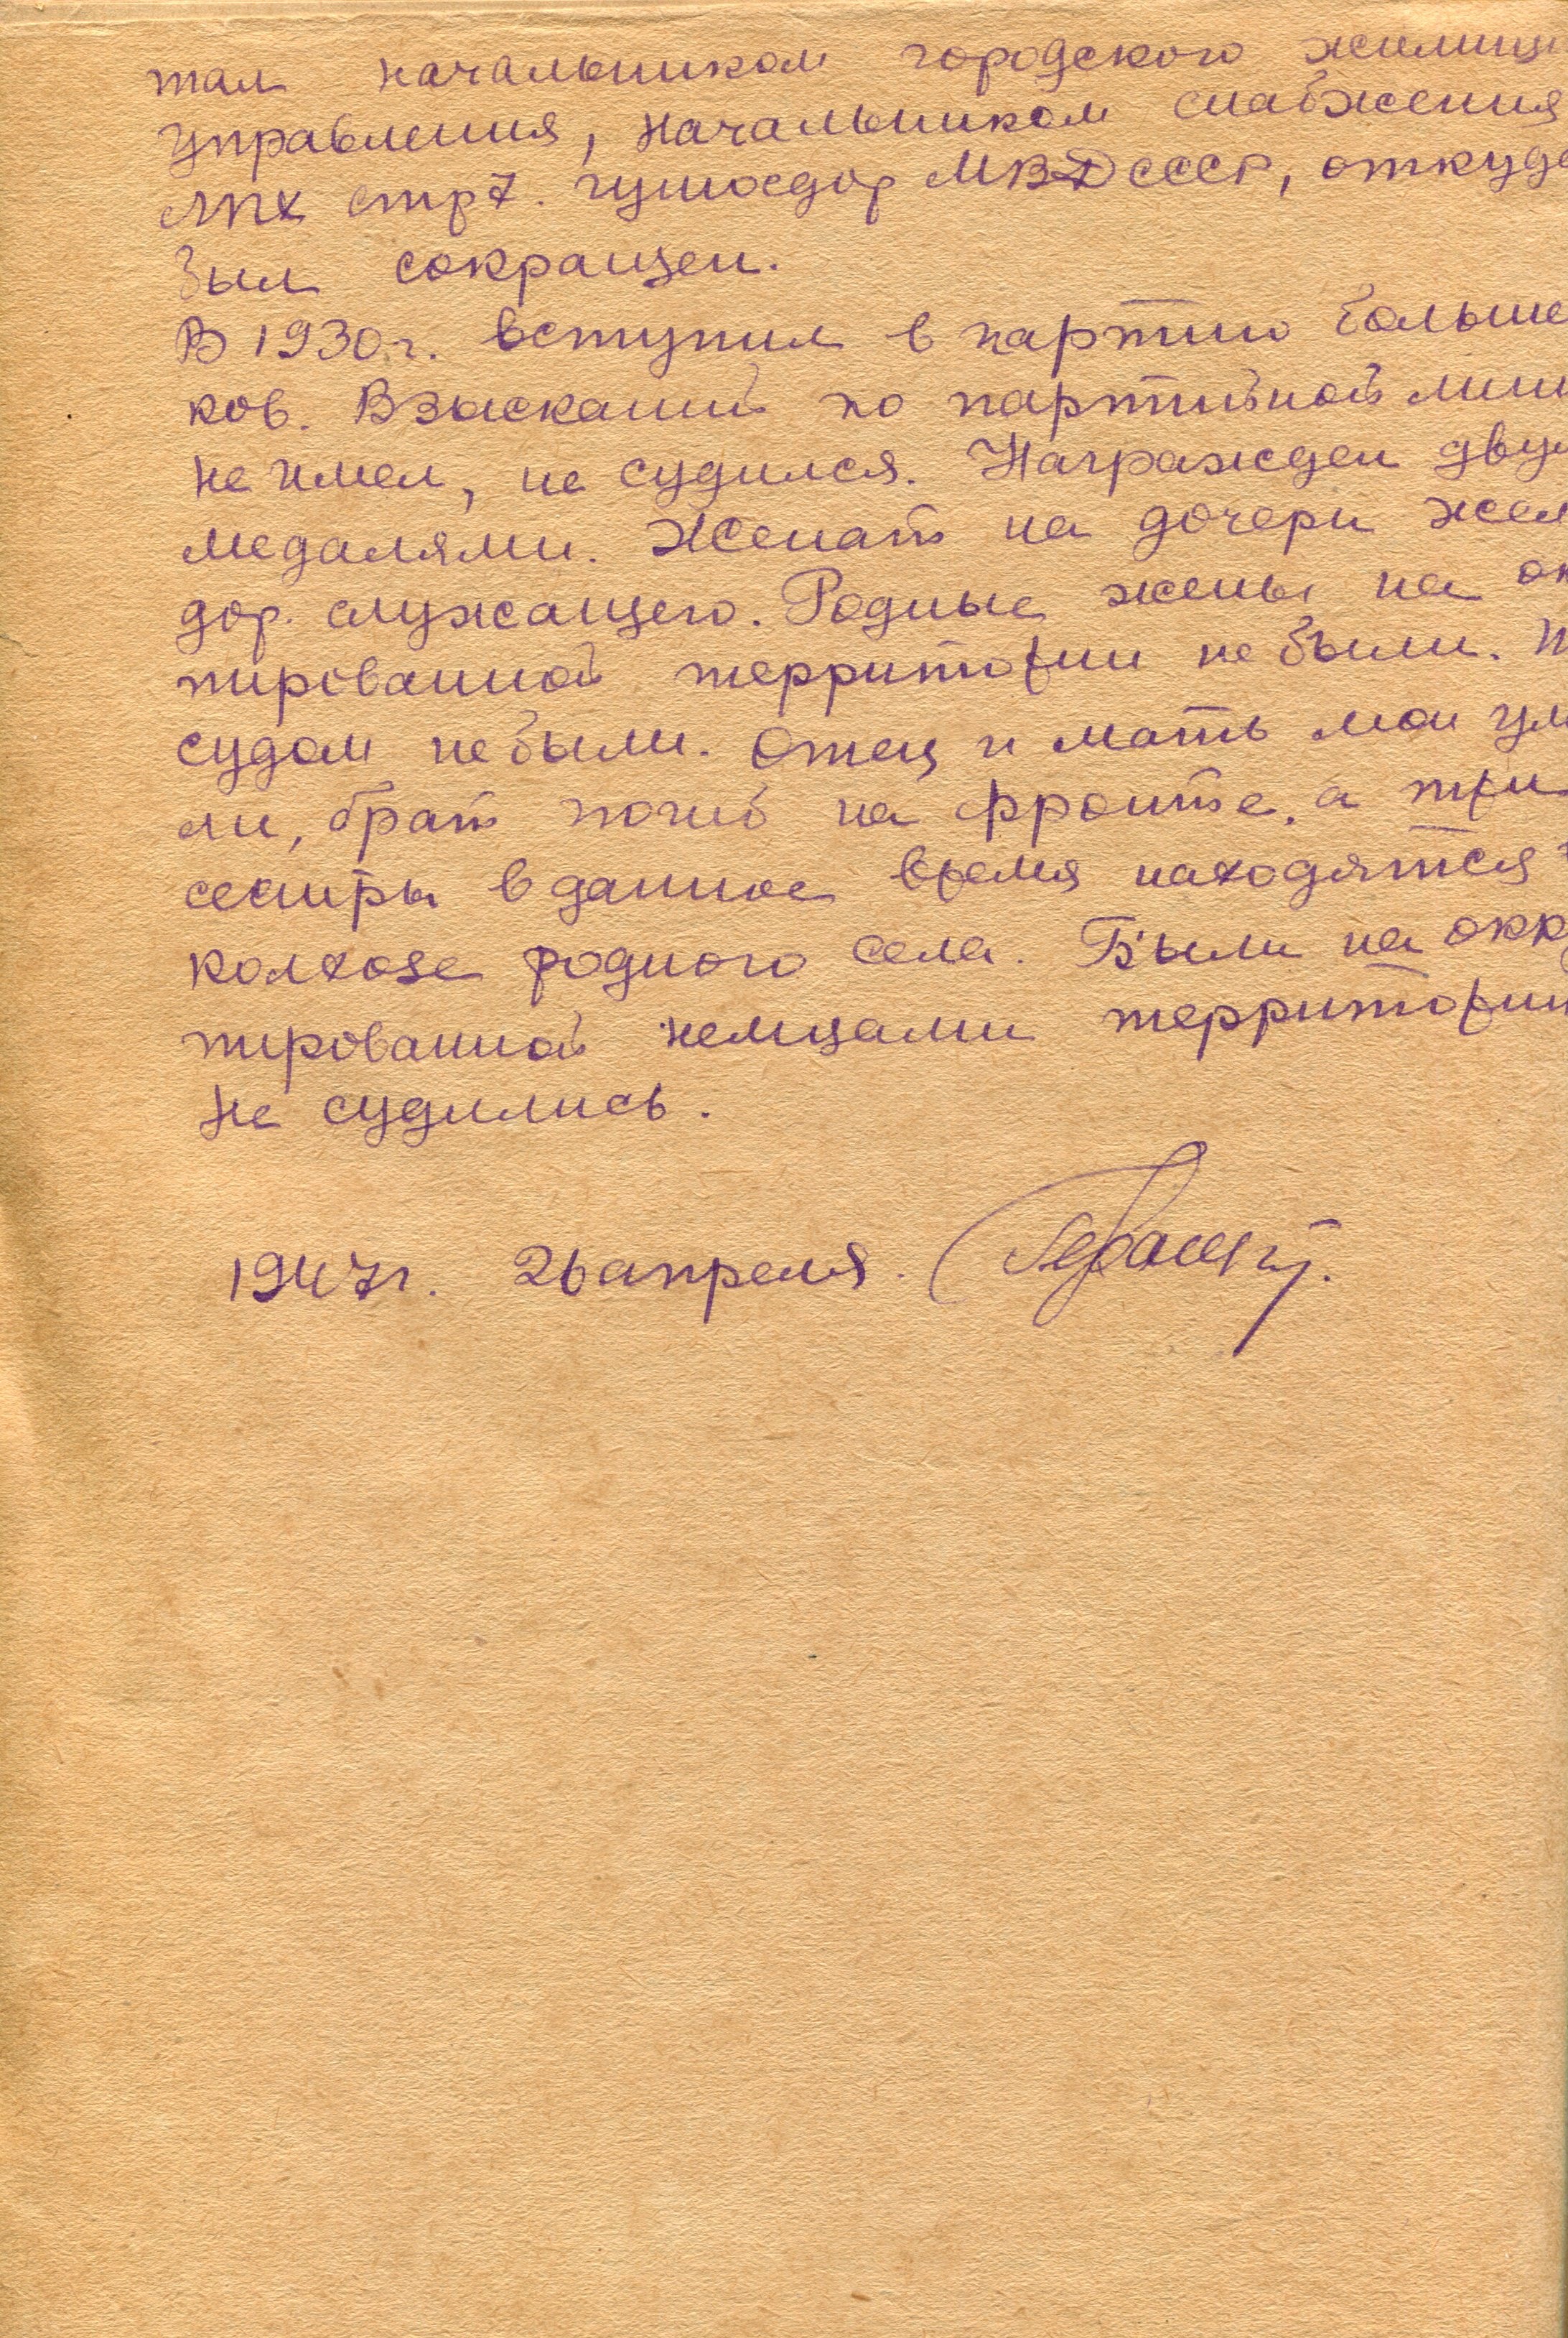 тал начальником городского жилищ
управления, начальником снабжения
ЛПХ стр7. гушосдор МВД СССР, откуда
был сокращен.
В 1930г. вступил в партию больше
ков. Взысканий по партийной лини
не имел, не судился. Награжден двум
медалями. Женат на дочери жел
дор. служащего. Родные жены на ок
пированной территории не были. П
судом не были. Отец и мать мои ум
ли, брат погиб на фронте, а три
сестры в данное время находятся
колхозе родного села. Были на окк
пированной немцами территории
Не судились.
1947г. 26 апреля.